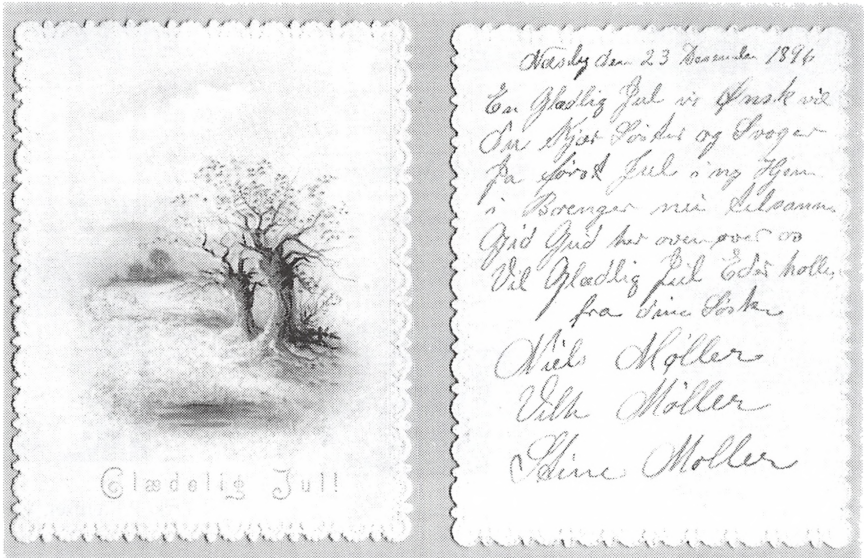 Glædelig Jul!
den 23 December 1896
En Glædlig Jul vi Ønsk vil
du Kjær Søster og Svoger
Ja først Jul i ny Hjem
i nu tilsamm
Gid Gud her oven over os
Vil Glædlig Jul Eder holle
fra dine Søsk
Niels Møller
Vilh Möller
Stine Moller